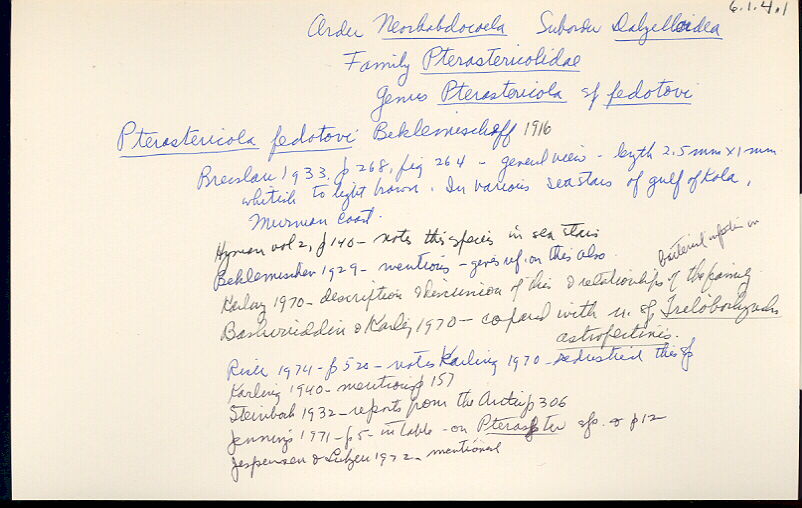 6.1.4.1
Order Neorhabdocoela Suborder Dalyelloidea
Family Pterastericolidae
Genus Pterastericola sp fedotovi
Pterastericola fedotovi Beklemischeff 1916
Breslau 1933, p 268, fig 264 - general view - length 2.5 mm x 1 mm
whitish to light brown. In various seastars of gulf of Kola,
Murman coast.
Hyman vol 2, p 140 - notes this species in sea stars
Beklemischev 1929 - mentions - gives ref. on this also
Karling 1970 - description & discussion of this & relationships of the family
bacterial infection in
Bashiruddin & Karling 1970 - compared with n. sp Triloborhynchus
astropectinis.
Riser 1974 - p 520 - notes Karling 1970 - this sp
Karling 1940 - mention p 157
Steinbock 1932 - reports from the Arctic p 306
Jennings 1971 - p 5 - in table - on Pteraster sp. & p 12
Jespersen & Lutzen 1972 - mentioned